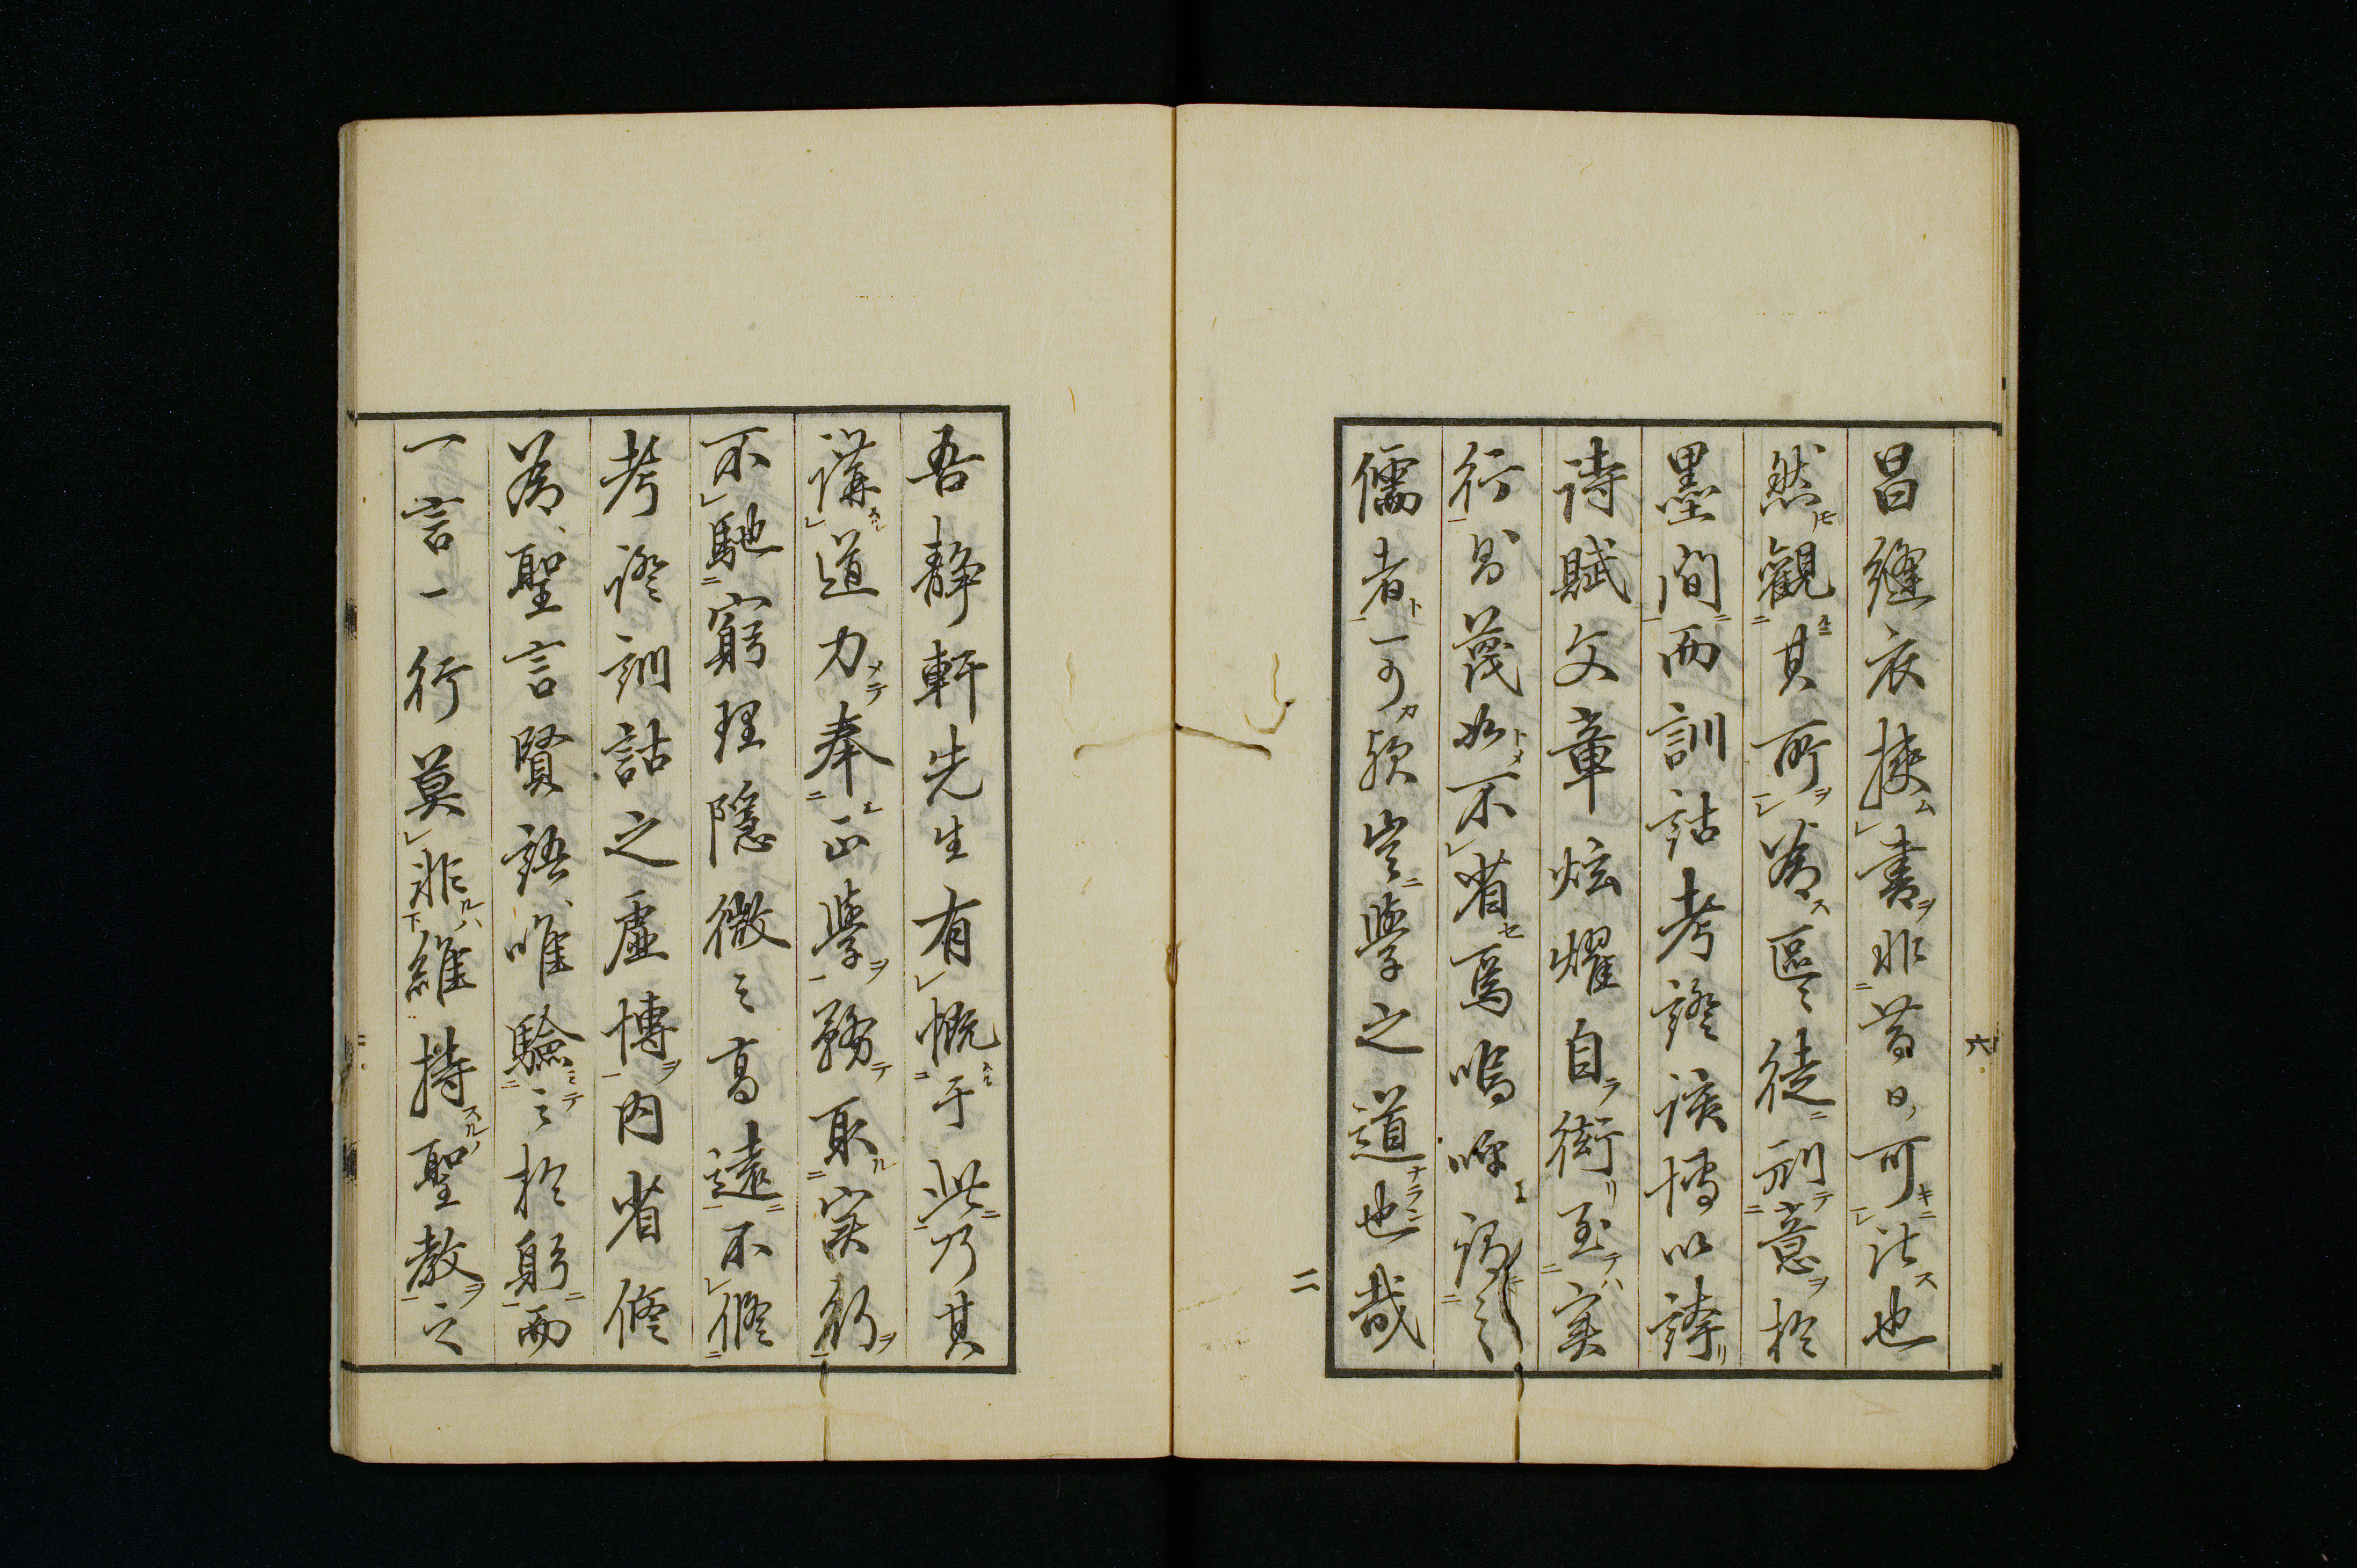 昌縫衣挾書非昔日可法也
然觀其所為區〻徒刓意於
墨間而訓詁考證該博以誇
詩賦文章炫燿自衒至実
行則蔑如不省焉嗚呼謂之
儒者可歟豈學之道也哉
二
吾静軒先生有慨于此乃其
講道力奉正學務取実行
不馳窮理隱微之高遠不修
考證訓詁之虛博内省修
為聖言賢語唯驗之於躬而
一言一行莫非維持聖教之